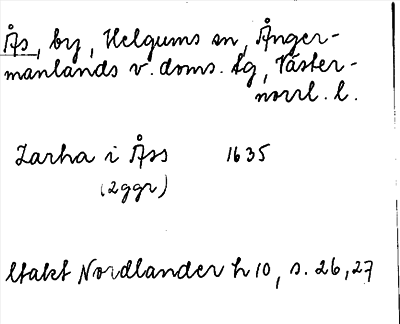 Ås, by, Helgums sn, Ånger-
manlands v. doms. tg, Väster-
norrl. l.
Zarha i Åss 1635
(2ggr)
Nordlander h 10, s. 26, 27